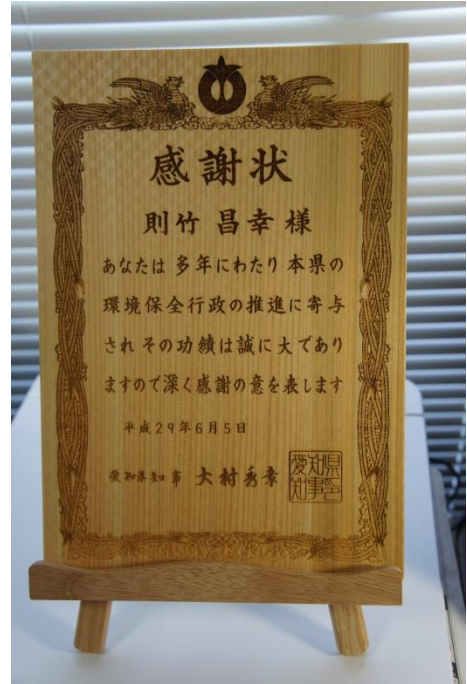 感謝状
則竹 昌幸 様
あなたは 多年にわたり 本県の
環境保全行政の推進に寄与
され その功績は誠に大であり
ますので深く感謝の意を表します
平成29年6月5日
愛知県知事 大村秀章
愛知県
知事之印